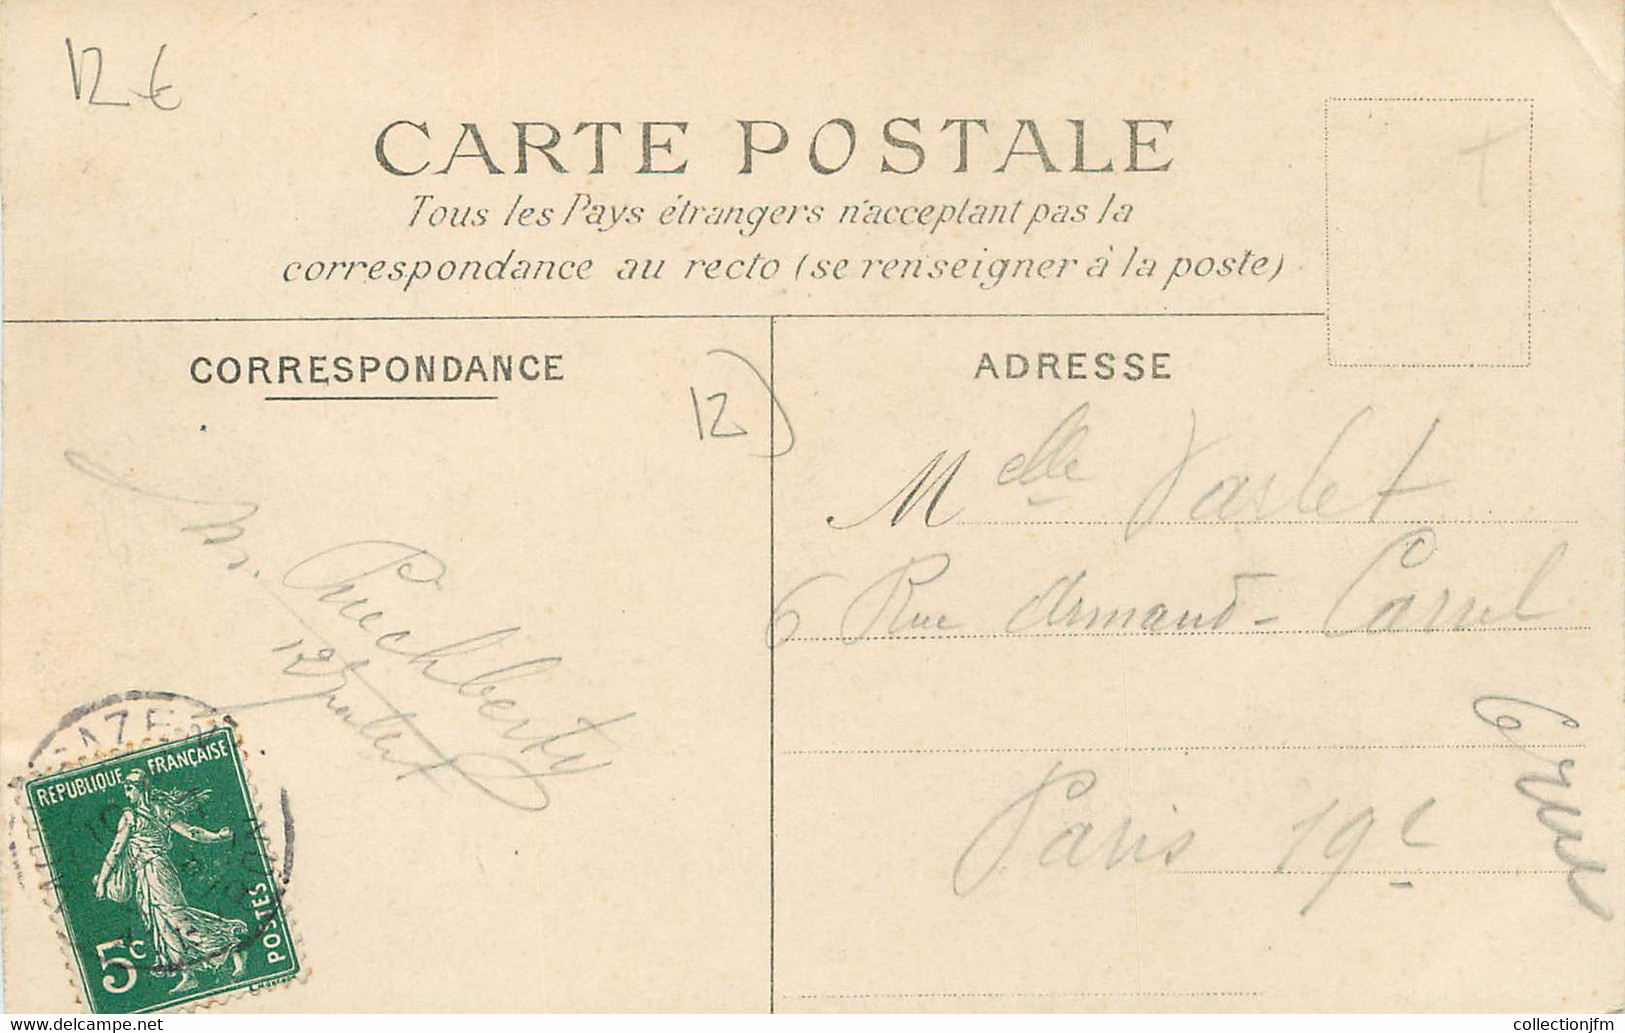 12 €
CARTE POSTALE
Tous les Pays étrangers n'acceptant pas la
correspondance au recto (se renseigner à la poste)
CORRESPONDANCE
12)
ADRESSE
Melle Varlet
6 Rue Armand-Carrel
Paris 19e
M. Puechberty
12 Juillet
REPUBLIQUE FRANÇAISE
POSTES
5c
collectionjfm